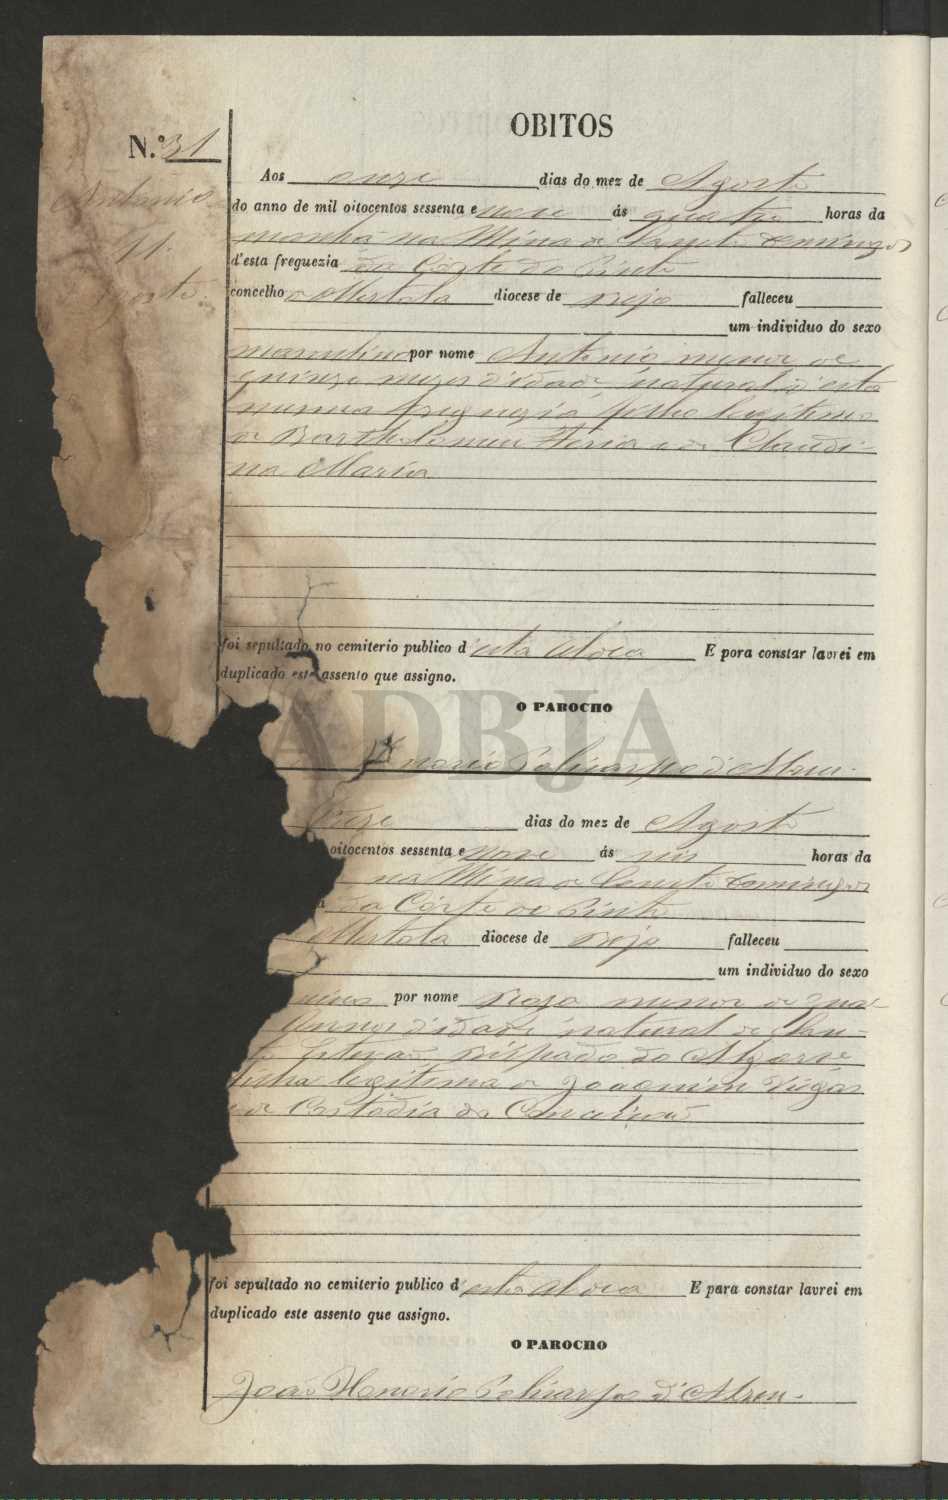 OBITOS
N.º 31
Antonio
11
Agosto
Aos onze dias do mez de Agosto
do anno de mil oitocentos sessenta e nove ás quatro horas da
manhã na Mina de Domingos
d'esta freguezia da Côrte do Pinto
concelho Mertola diocese de Beja falleceu
um individuo do sexo
masculino por nome Antonio menor de
quinze mezes d'idade natural d'esta
mesma freguezia, filho legitimo
de Bartholomeu Faria e de Claudi-
na Maria
foi sepultado no cemiterio publico d'esta aldeia E pora constar lavrei em
duplicado este assento que assigno.
O PAROCHO
Honorio Policarpo d'Abreu.
ADBJA
onze dias do mez de Agosto
oitocentos sessenta e nove ás seis horas da
na Mina de Domingos
da Côrte do Pinto
Mertola diocese de Beja falleceu
um individuo do sexo
nino por nome Roza menor de qua-
annos d'idade natural de San-
Estevão Bispado do Algarve
filha legitima de Joaquim Viegas
e de Custodia da Conceição
foi sepultado no cemiterio publico d'esta aldeia E para constar lavrei em
duplicado este assento que assigno.
O PAROCHO
João Honorio Policarpo d'Abreu.